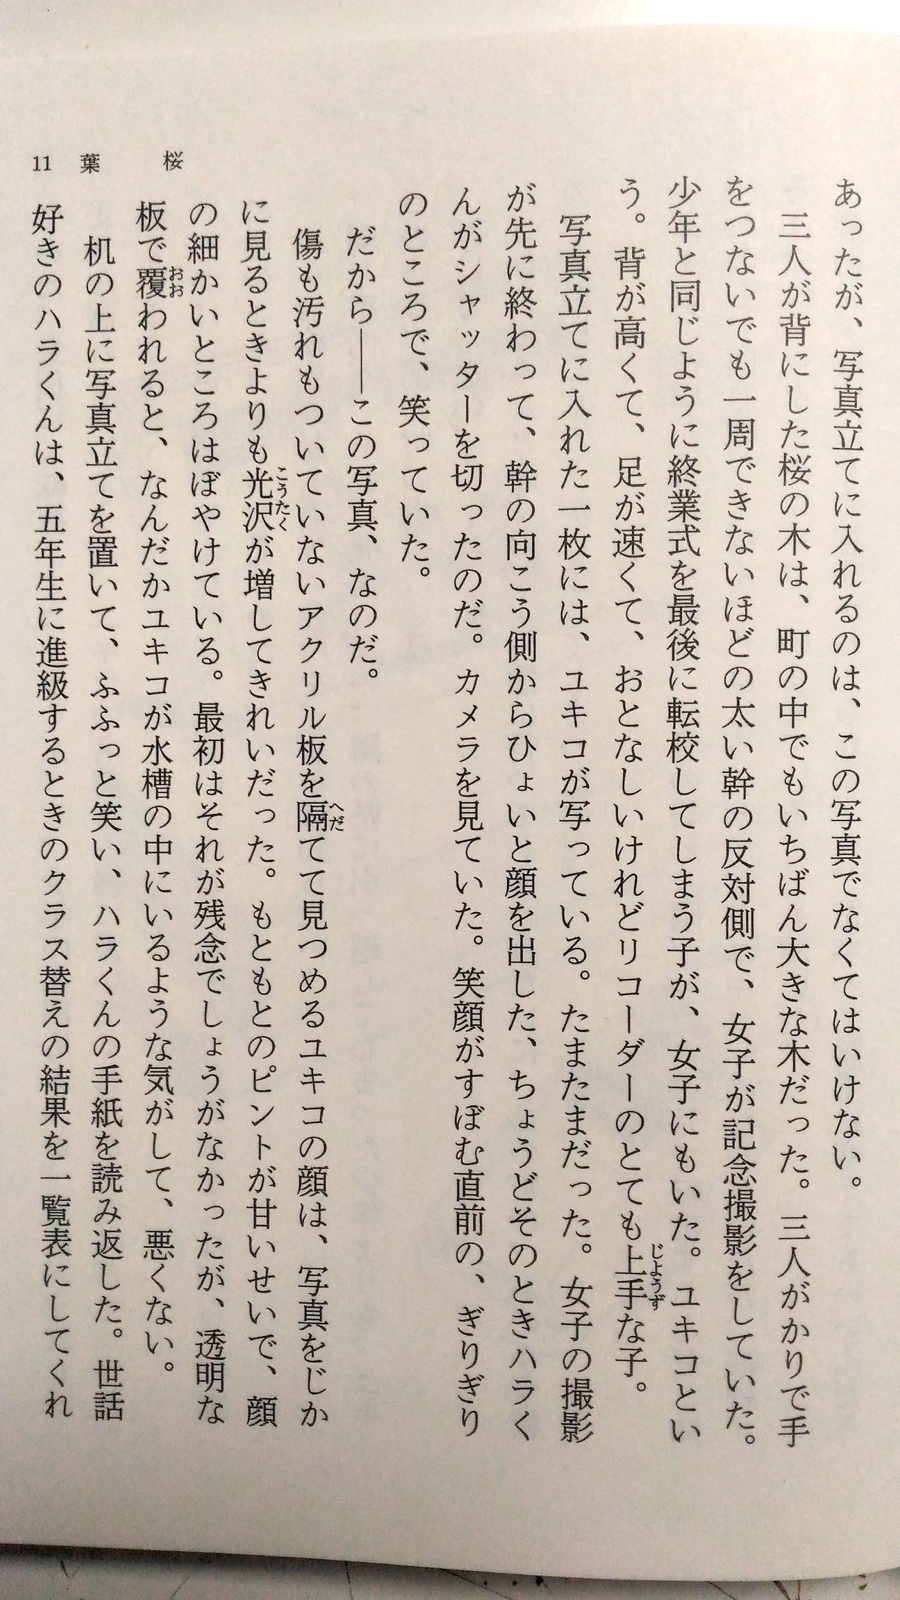 あったが、写真立てに入れるのは、この写真でなくてはいけない。
三人が背にした桜の木は、町の中でもいちばん大きな木だった。三人がかりで手
をつないでも一周できないほどの太い幹の反対側で、女子が記念撮影をしていた。
少年と同じように終業式を最後に転校してしまう子が、女子にもいた。ユキコとい
う。背が高くて、足が速くて、おとなしいけれどリコーダーのとても上手な子。
写真立てに入れた一枚には、ユキコが写っている。たまたまだった。女子の撮影
が先に終わって、幹の向こう側からひょいと顔を出した、ちょうどそのときハラく
んがシャッターを切ったのだ。カメラを見ていた。笑顔がすぼむ直前の、ぎりぎり
のところで、笑っていた。
だから――この写真、なのだ。
傷も汚れもついていないアクリル板を隔てて見つめるユキコの顔は、写真をじか
に見るときよりも光沢が増してきれいだった。もともとのピントが甘いせいで、顔
の細かいところはぼやけている。最初はそれが残念でしょうがなかったが、透明な
板で覆われると、なんだかユキコが水槽の中にいるような気がして、悪くない。
机の上に写真立てを置いて、ふふっと笑い、ハラくんの手紙を読み返した。世話
好きのハラくんは、五年生に進級するときのクラス替えの結果を一覧表にしてくれ
11 葉桜